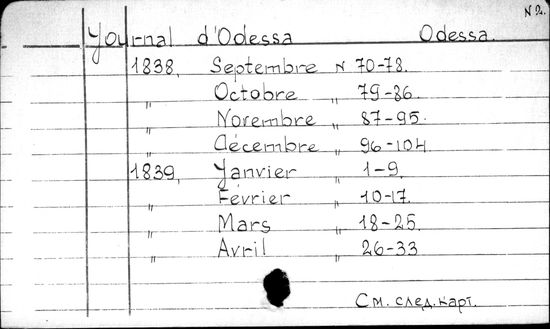 N 2.
Journal d'Odessa Odessa.
1838, Septembre N 70-78.
" Octobre " 79-86.
" Novembre " 87-95.
" Décembre " 96-104
1839, Janvier " 1-9.
" Février " 10-17.
" Mars " 18-25.
" Avril " 26-33
См. след. карт.